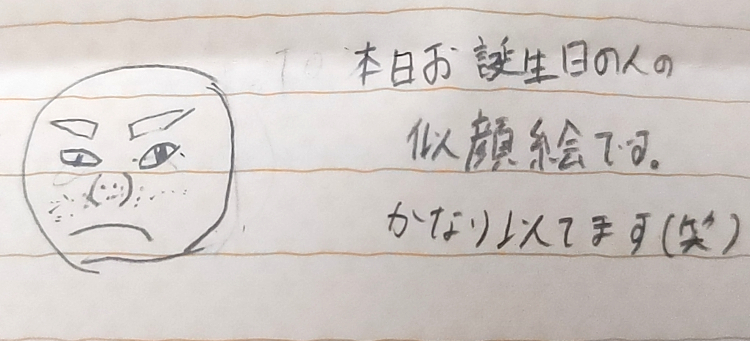 本日お誕生日の人の
似顔絵です。
かなり似てます(笑)